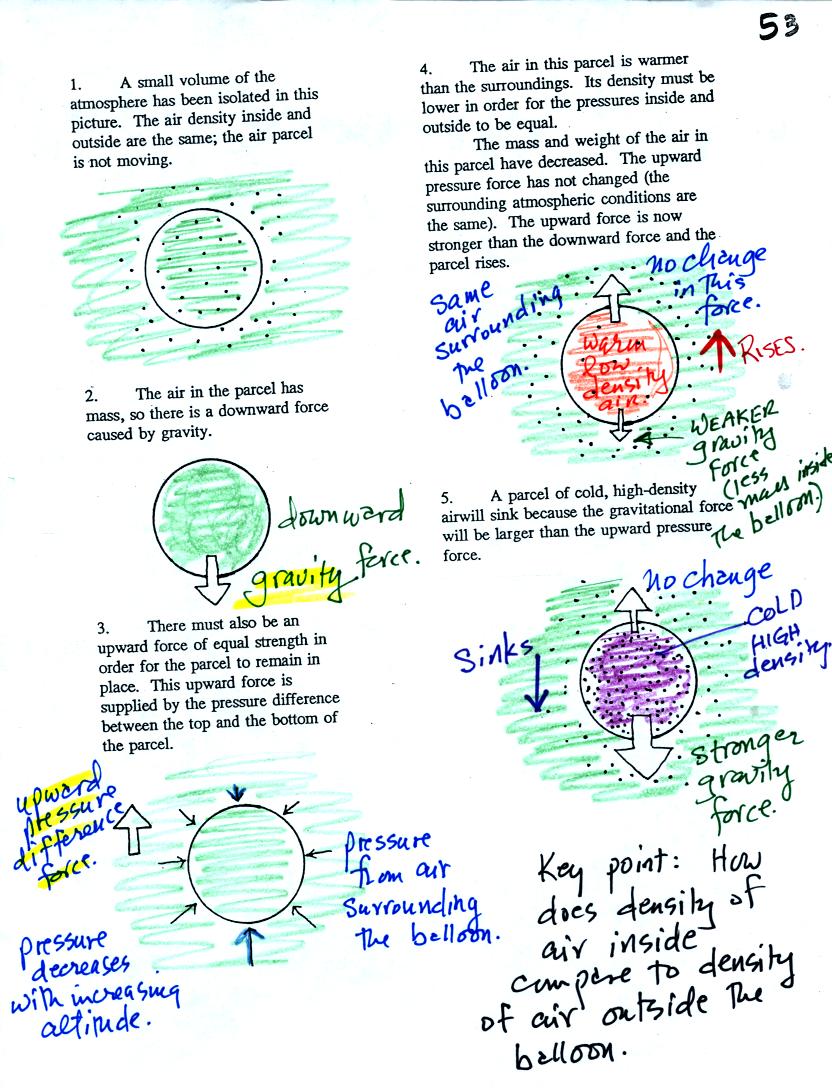 53
1. A small volume of the
atmosphere has been isolated in this
picture. The air density inside and
outside are the same; the air parcel
is not moving.
2. The air in the parcel has
mass, so there is a downward force
caused by gravity.
downward
gravity force.
3. There must also be an
upward force of equal strength in
order for the parcel to remain in
place. This upward force is
supplied by the pressure difference
between the top and the bottom of
the parcel.
upward
pressure
difference
force.
pressure
from air
surrounding
the balloon.
pressure
decreases
with increasing
altitude.
4. The air in this parcel is warmer
than the surroundings. Its density must be
lower in order for the pressures inside and
outside to be equal.
The mass and weight of the air in
this parcel have decreased. The upward
pressure force has not changed (the
surrounding atmospheric conditions are
the same). The upward force is now
stronger than the downward force and the
parcel rises.
same
air
surrounding
the
balloon.
no change
in this
force.
warm
low
density
air.
RISES.
WEAKER
gravity
force
(less
mass inside
the balloon.)
5. A parcel of cold, high-density
airwill sink because the gravitational force
will be larger than the upward pressure
force.
No change
COLD
HIGH
density.
Sinks
stronger
gravity
force.
Key point: How
does density of
air inside
compare to density
of air outside the
balloon.